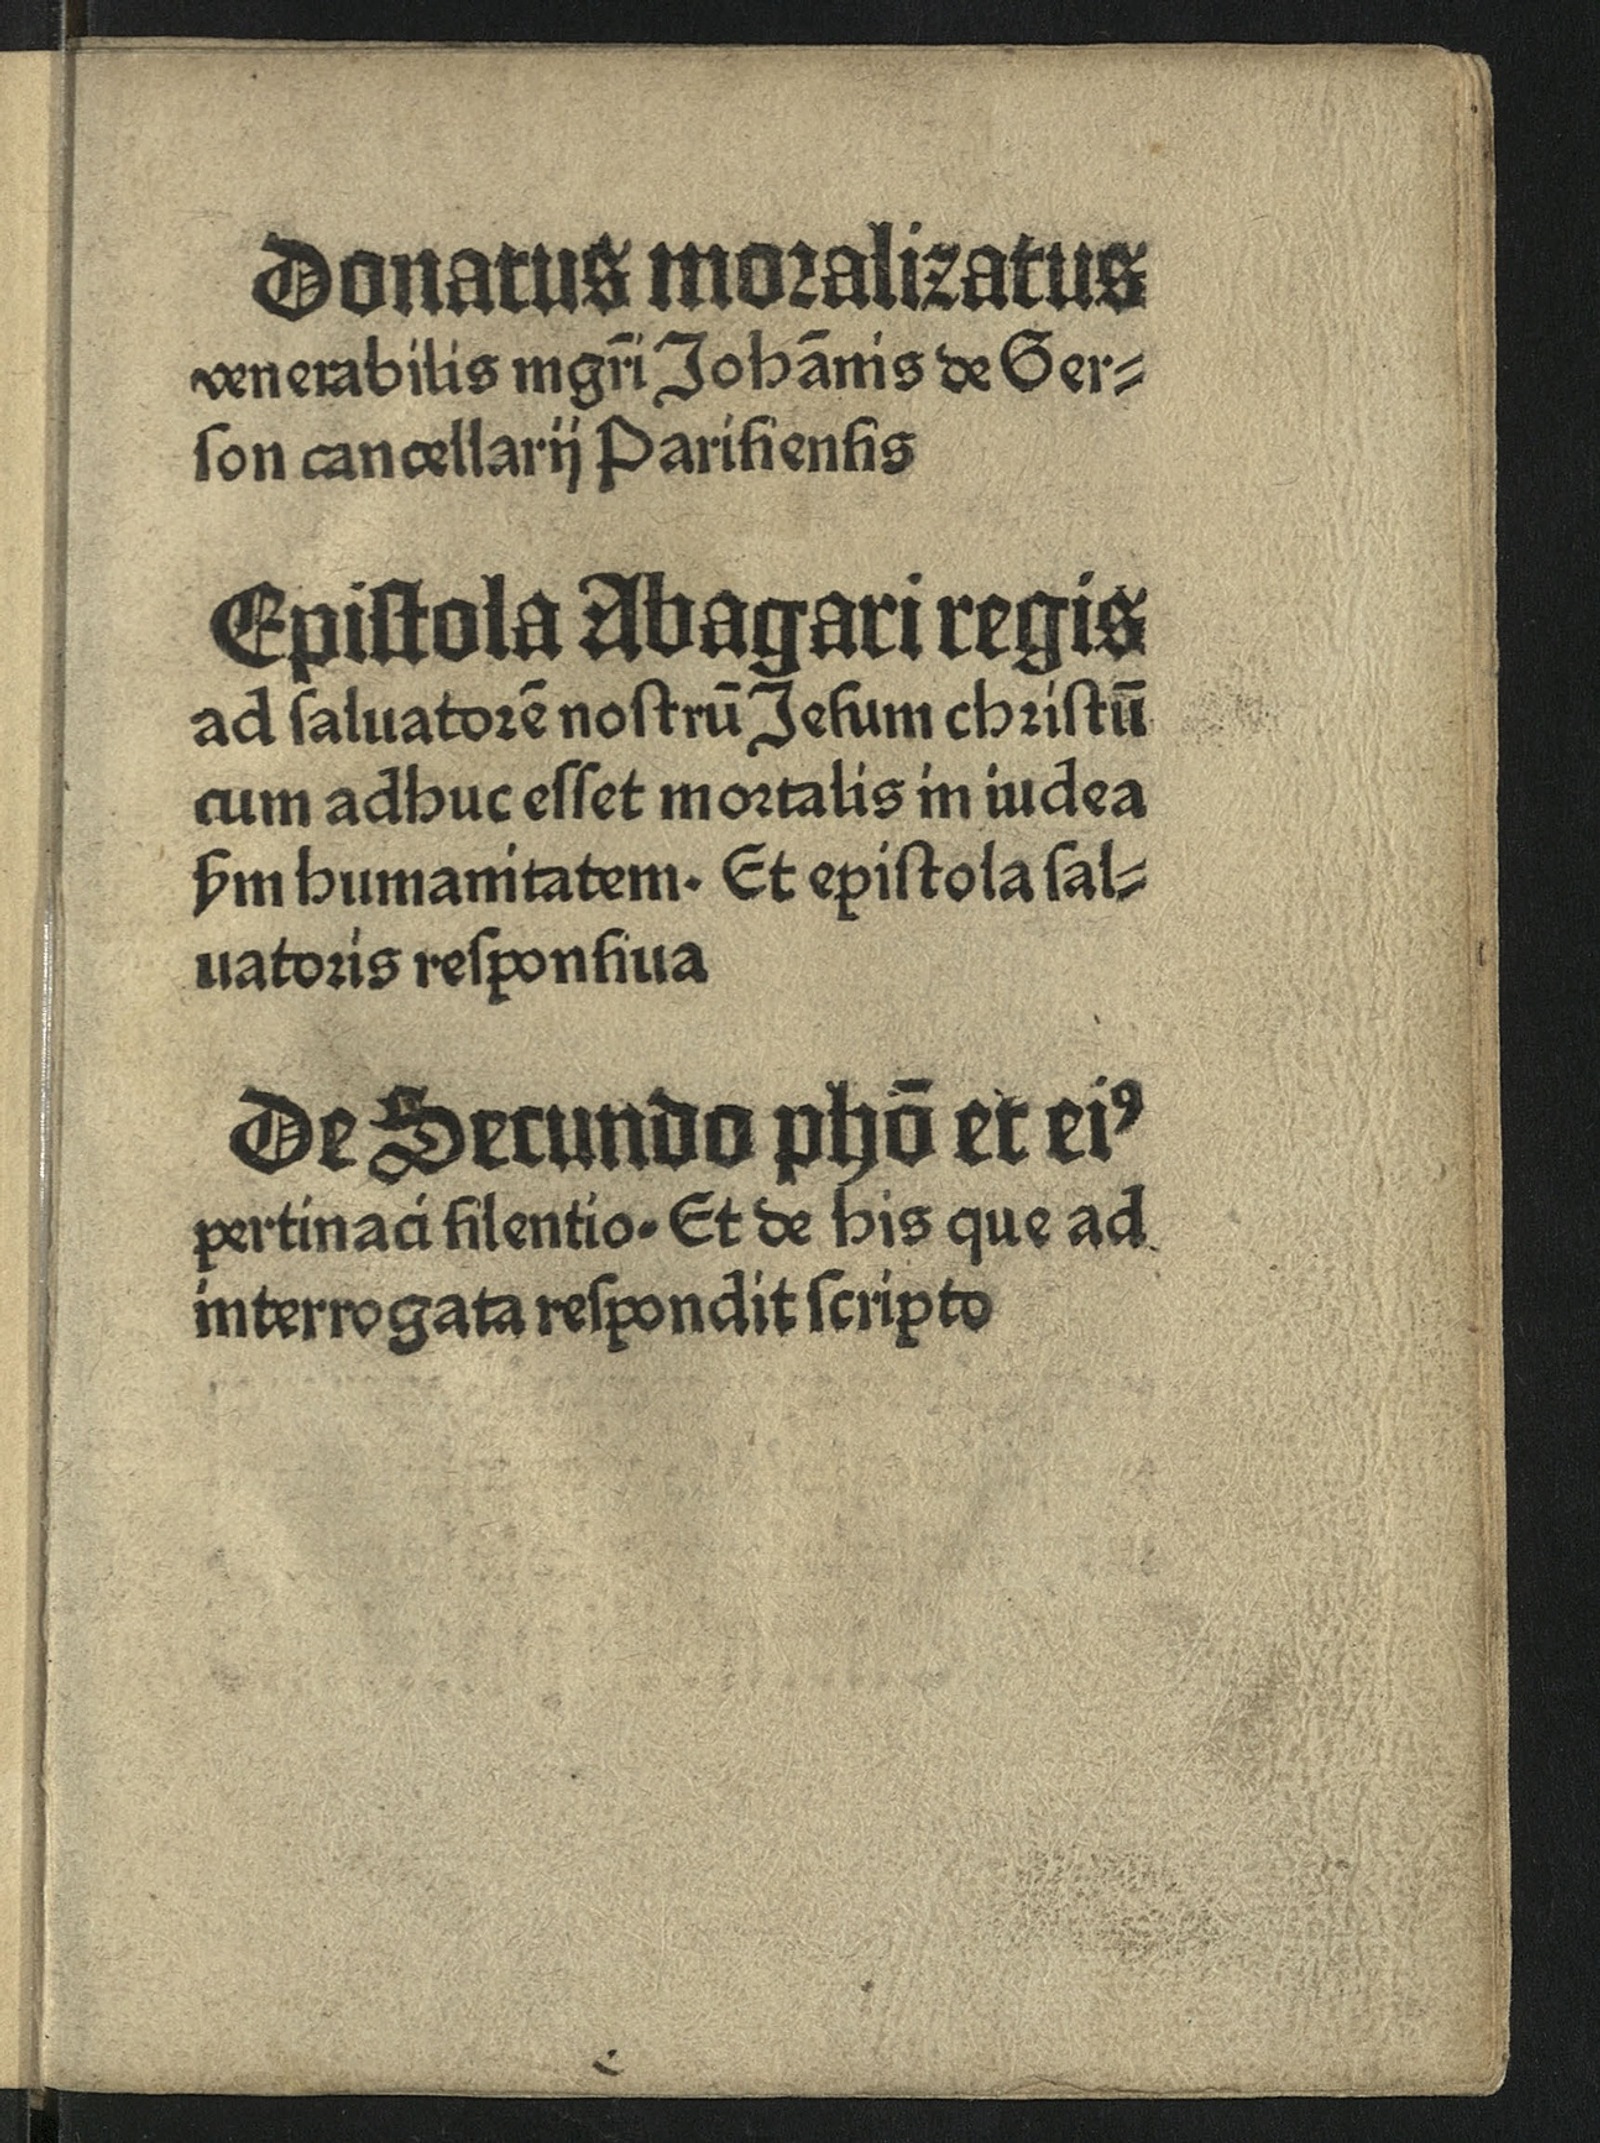 Donatus moralizatus
venerabilis mgr̄i Johānis de Ger⸗
ſon cancellarij Pariſienſis
Epiſtola Abagari regis
ad ſaluatorē noſtrū Jeſum chriſtū
cum adhuc eſſet mortalis in iudea
ẜm humanitatem. Et epiſtola ſal⸗
uatoris reſponſiua
De Secundo phō et eiꝰ
pertinaci ſilentio. Et de his que ad
interrogata reſpondit ſcripto